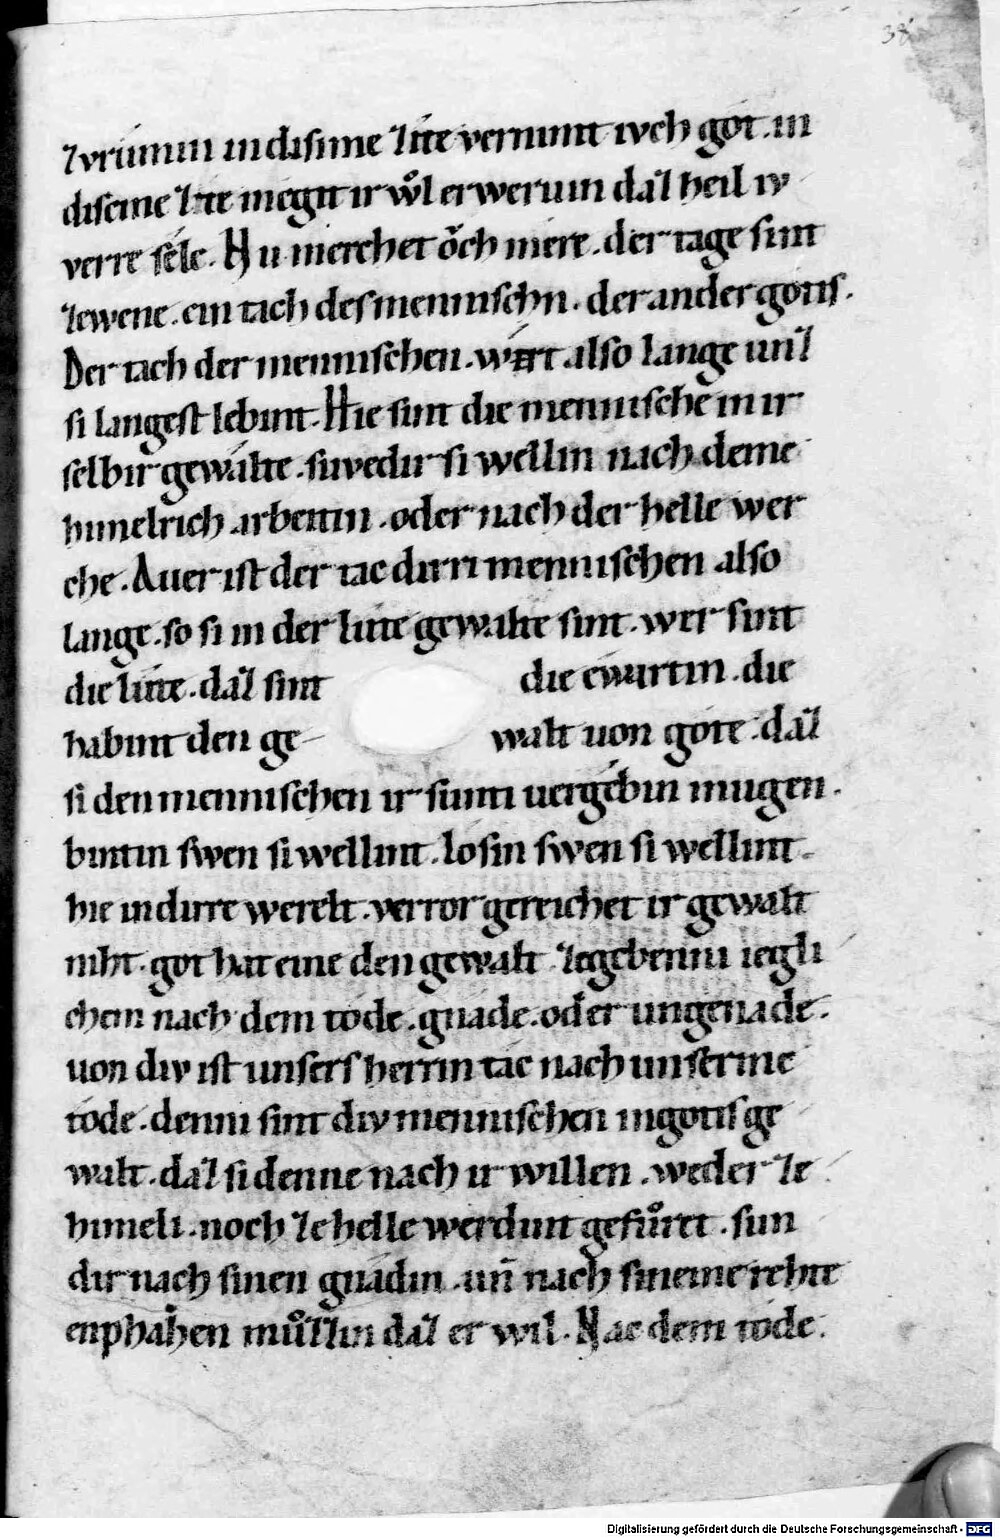 38
zvriumin in disime zite vernimt ivch got. in
diseme zite megit ir wͦl erwerum daz heil iv
verre sele. Nu merchet och mere. der tage sint
zewene. ein tach des mennischn. der ander gotis.
Der tach der mennischen. wert also lange unz
si langest lebint. Hie sint die mennische in ir
selbir gewalte. suvedir si wellin nach deme
himelrich arbeitin. oder nach der helle wer
che. Auer ist der tac dirri mennischen also
lange. so si in der lute gewalte sint. wer sint
die lute. daz sint die ewartin. die
habint den ge- walt uon gote. daz
si den mennischen ir sunti uergebin mugen.
bintin swen si wellint. losin swen si wellint.
hie in dirre werelt. verror gereichet ir gewalt
niht. got hat eine den gewalt zegebenni iegli
chem nach dem tode. gnade. oder ungenade.
uon div ist unsers herrin tac nach unserme
tode. denni sint div mennischen in gotis ge
walt. daz si denne nach ir willen. weder ze
himeli. noch ze helle werdint gefuͦret. sun
dir nach sinen gnadin. un̄ nach sineme rehte
enphahen muͦzzin daz er wil. Nac dem tode.
Digitalisierung gefördert durch die Deutsche Forschungsgemeinschaft - DFG